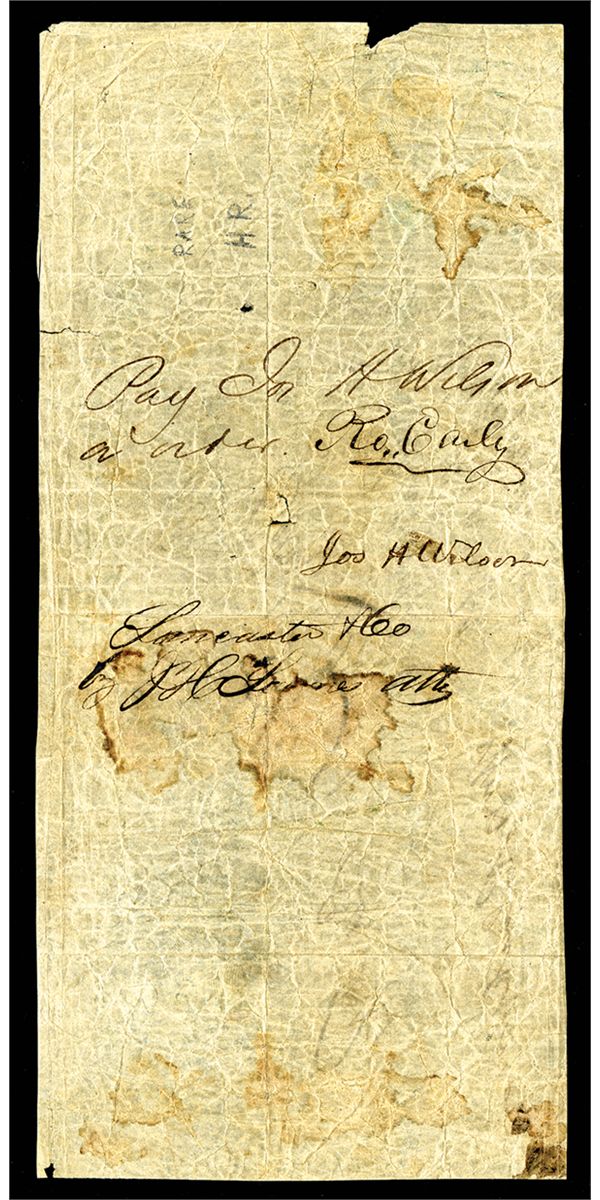 RARE
H.R.
Pay Jos H Wilson
or order. Ro. Early
Jos H Wilson
Lancaster & Co
by
atty